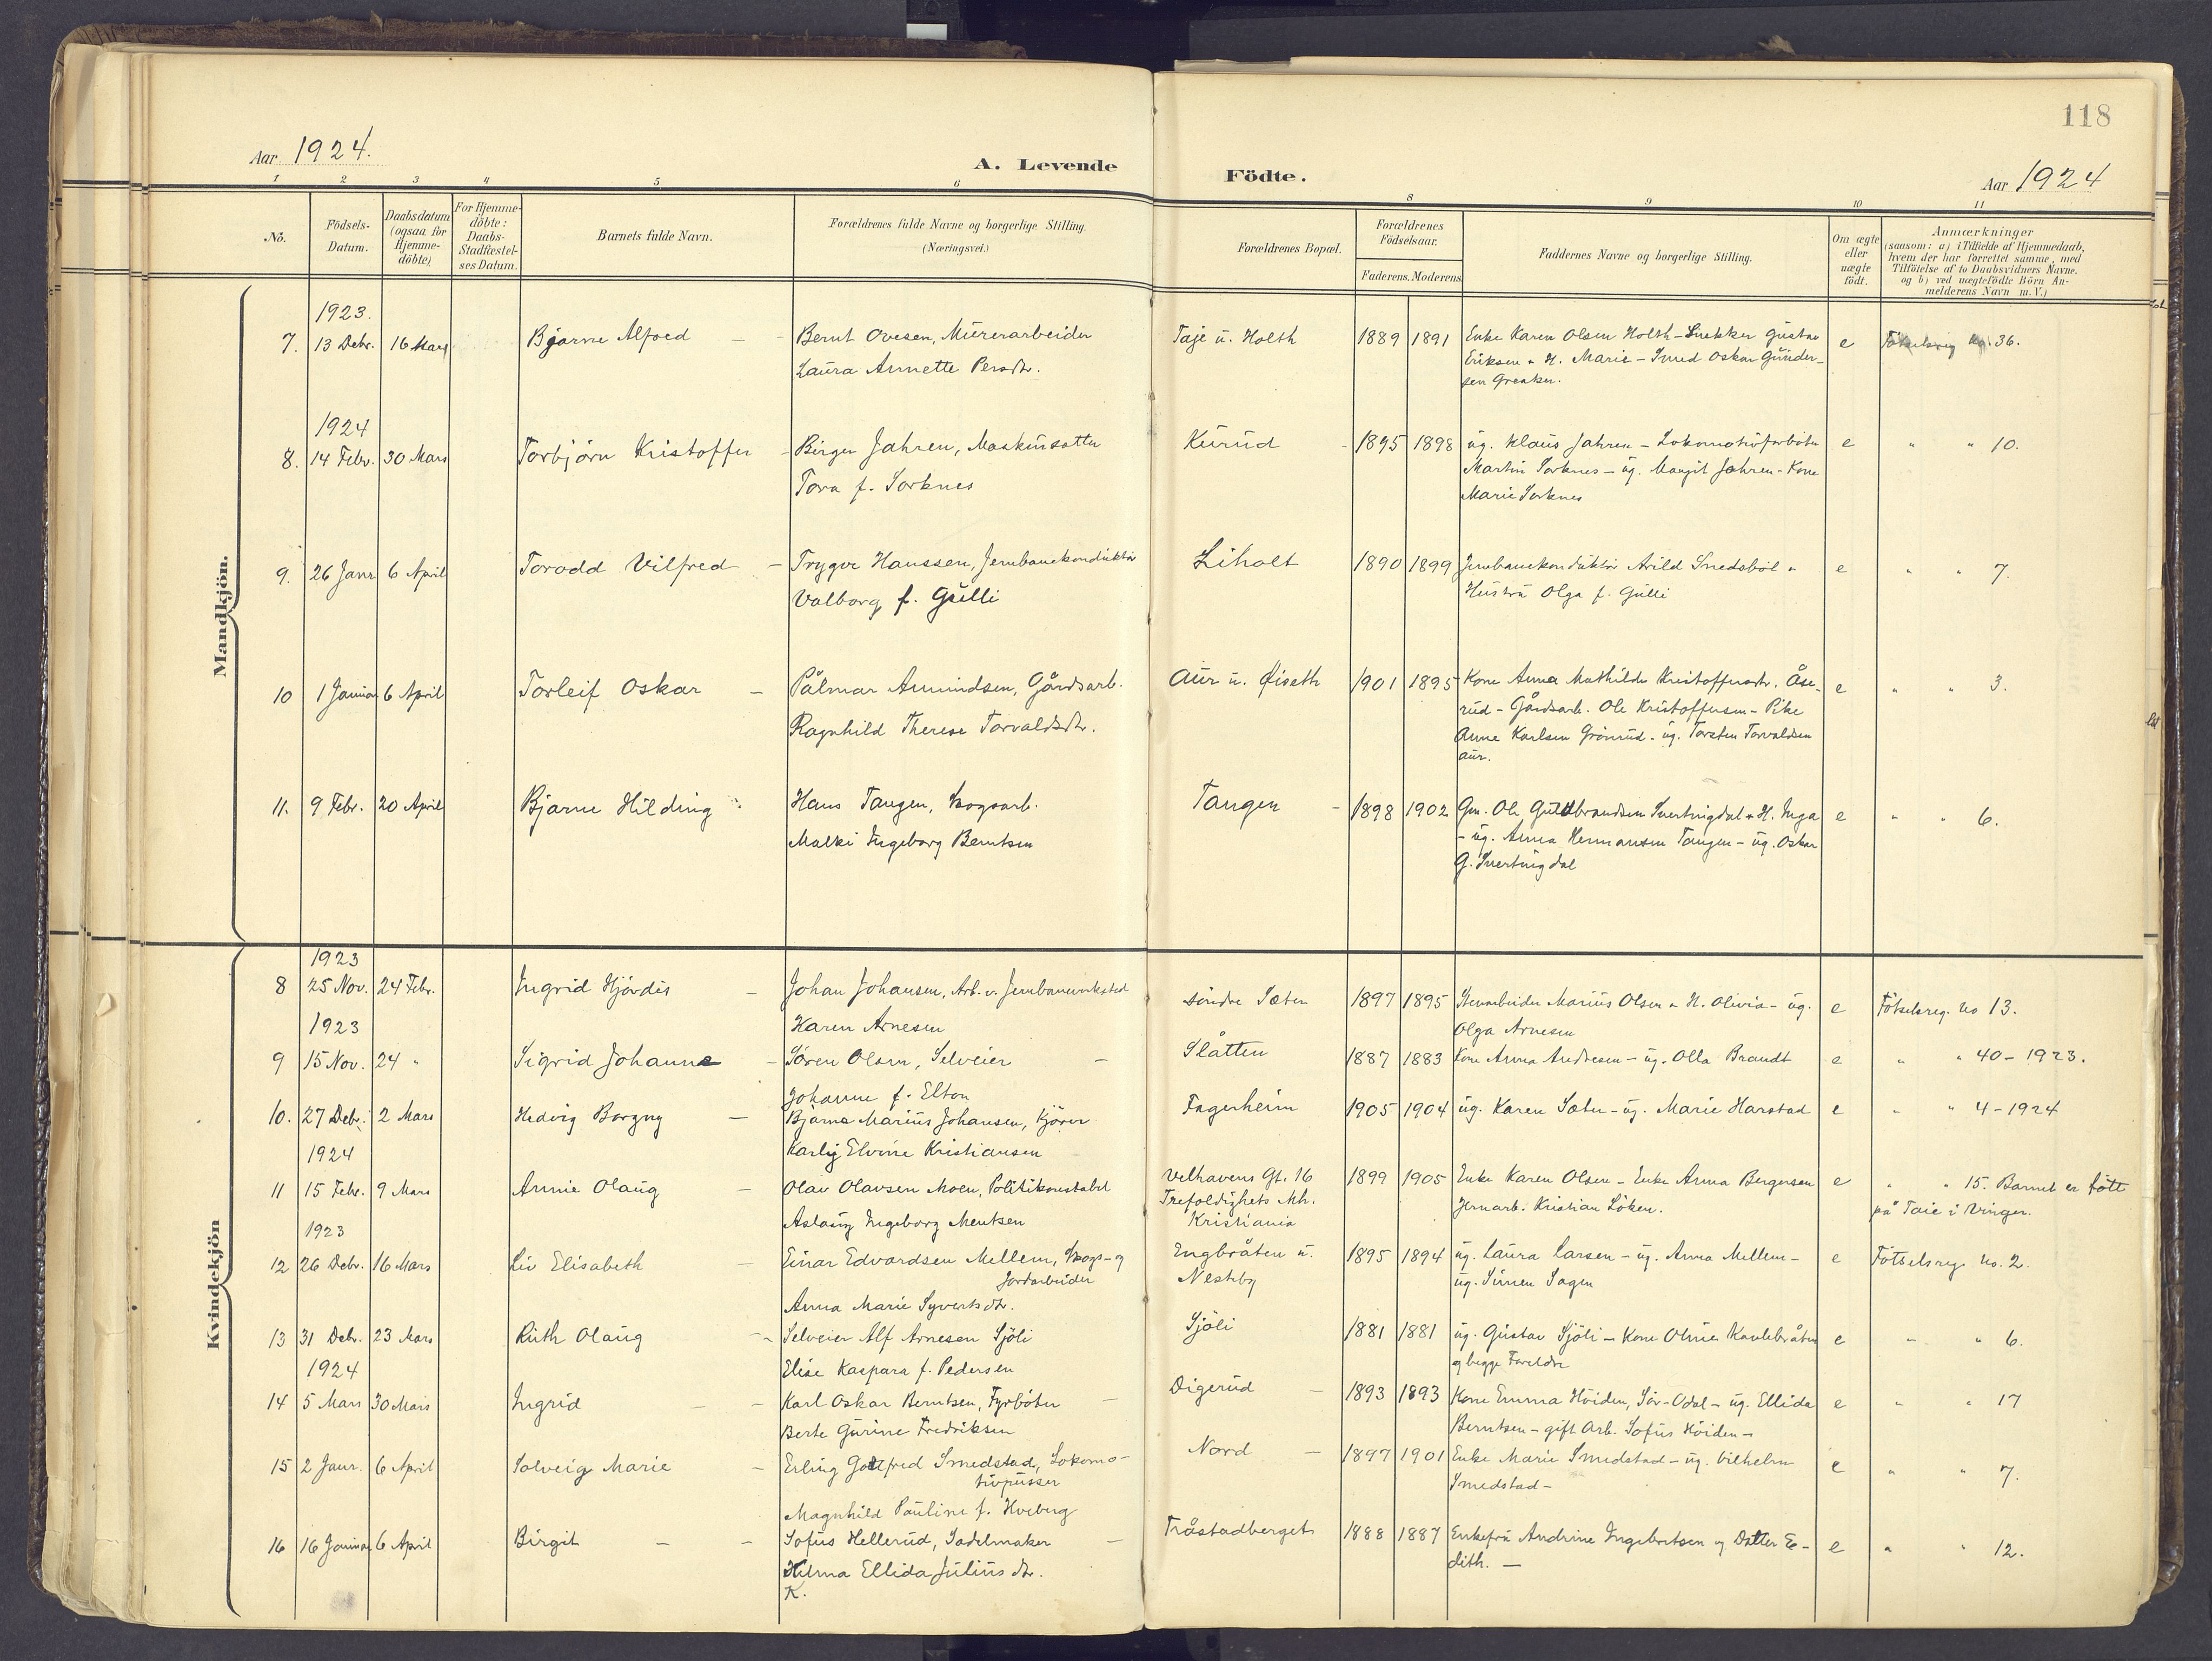 118
Aar 1924.
A. Levende
Födte.
Aar 1924
1 2 3 4 5 6 8 9 10 11
No.
Födsels-
Datum.
Daabsdatum
(ogsaa for
Hjemme-
döbte)
For Hjemme-
döbte:
Daabs-
Stadfæstel-
ses Datum.
Barnets fulde Navn.
Forældrenes fulde Navne og borgerlige Stilling.
(Næringsvei.)
Forældrenes Bopæl.
Forældrenes
Födselsaar.
Faderens. Moderens.
Faddernes Navne og borgerlige Stilling.
Om ægte
eller
uægte
födt.
Anmærkninger
(saasom: a) i Tilfælde af Hjemmedaab,
hvem der har forrettet samme, med
Tilföielse af to Daabsvidners Navne.
og b) ved uægtefödte Börn An-
melderens Navn m. V.)
Mandkjön.
1923.
7. 13 Debr. 16 Mars Bjarne Alfred - Bernt Ovesen, Murerarbeider Taje u. Holth 1889 1891 Enke Karen Olsen Holth - Snekker Gustav e Fötselsreg No 36.
Laura Annette Persdtr. Eriksen & H. Marie - Smed Oskar Gunder-
sen Greaker.
1924
8. 14 Febr. 30 Mars Torbjörn Kristoffer - Birger Jahren, Maskinsetter Kurud - 1895 1898 ug. Klaus Jahren - Lokomotivförböter e " " 10.
Tora f. Sorknes Martin Sorknes - ug. Margit Jahren - Kone
Marie Sorknes
9. 26 Janr 6 April Torodd Vilfred - Trygve Hanssen, Jernbanekonduktör Liholt 1890 1899 Jernbanekonduktör Arild Smedsböl & e " " 7.
Valborg f. Gulli Hustru Olga f. Gulli
10 1 Januar 6 April Torleif Oskar - Pålmar Amundsen, Gårdsarb. Aur u. Öiseth 1901 1895 Kone Anna Mathilde Kristoffersdtr. Åse- e " " 3.
Ragnhild Therese Torvaldsdtr. rud - Gårdsarb. Ole Kristoffersen - Pike
Anne Karlsen Grönrud - ug. Torsten Torvaldsen
Aur.
11. 9 Febr. 20 April Bjarne Hilding Hans Tangen, Skogsarb. Tangen - 1898 1902 Gm. Ole Guldbrandsen Svertingdal & H. Inga e " " 6.
Malki Ingeborg Berntsen - ug. Anna Hermansen Tangen - ug. Oskar
G. Svertingdal
Kvindekjön
1923
8 25 Nov. 24 Febr. Ingrid Hjördis - Johan Johansen, Arb. v. Jernbaneverksted söndre Sæter 1897 1895 Stenarbeider Marius Olsen & H. Olivia - ug. e Fötselsreg. No 13.
1923 Karen Arnesen Olga Arnesen
9 15 Nov. 24 " Sigrid Johanne - Sören Olsen, Selveier - Slåtten 1887 1883 Kone Anna Andresen - ug. Olla Brandt e " " 40 - 1923.
Johanne f. Elton
10. 27 Debr. 2 Mars Hedvig Borgny - Bjarne Marius Johansen, Kjörer Fagerheim 1905 1904 ug. Karen Sæter - ug. Marie Harstad e " " 4 - 1924
1924 Karly Elvine Kristiansen
11 15 Febr. 9 Mars Annie Olaug - Olav Olavsen Moen, Politikonstabel Velhavens Gt. 16 1899 1905 Enke Karen Olsen - Enke Anna Bergersen e " " 15. Barnet er fött
Trefoldighets Mh. Jernarb. Kristian Löken. på Taie i Vinger.
1923 Aslaug Ingeborg Mentsen Kristiania
12 26 Debr. 16 Mars Liv Elisabeth - Einar Edvardsen Mellem, Skogs- og Engbråten u. 1895 1894 ug. Laura Larsen - ug. Anna Mellem - e Fötselsreg No. 2.
Jordarbeider Nesteby ug. Sigen Sagen
Anna Marie Syvertsdtr.
13 31 Debr. 23 Mars Ruth Olaug - Selveier Alf Arnesen Sjöli Sjöli 1881 1881 ug. Gustav Sjöli - Kone Oline Kavlebråten e " " 6.
1924 Elise Kaspara f. Pedersen og begge Foreldre
14 5 Mars 30 Mars Ingrid - - Karl Oskar Berntsen, Fyrböter - Digerud - 1893 1893 Kone Emma Höiden, Sör-Odal - ug. Ellida e " " 17
Berte Gurine Fredriksen Berntsen - gift Arb. Sofus Höiden -
15 2 Janr. 6 April Solveig Marie - Erling Gotfred Smedstad, Lokomo- Nord - 1897 1901 Enke Marie Smedstad - ug. Vilhelm e " " 7.
tivpusser Smedstad -
Magnhild Pauline f. Hveberg
16 16 Januar 6 April Birgit - - Sofus Hellerud, Sadelmaker - Tråstadberget 1888 1887 Enkefru Andrine Ingebretsen og Datter E- e " " 12.
Hilma Ellida Juliusdtr. dith. -
K.